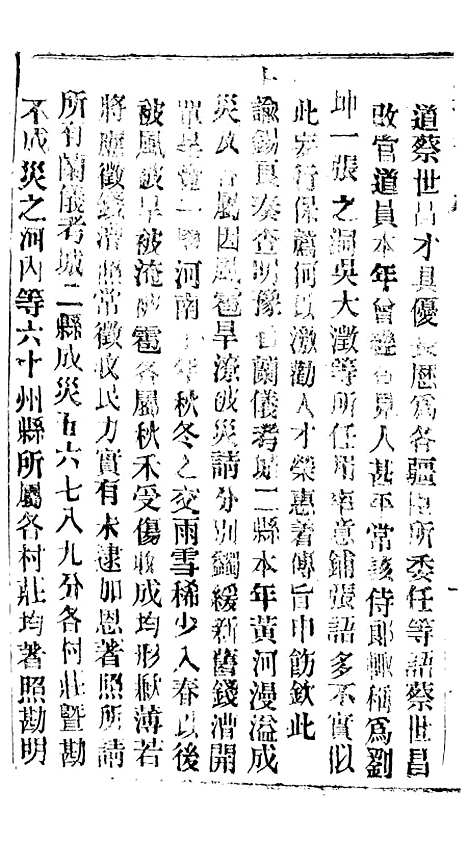 道蔡世昌才具優長歷爲各疆臣所委任等語蔡世昌
改官道員本年曾經召見人甚平常該侍郎輒稱爲劉
坤一張之洞吳大澂等所任用率意鋪張語多不實似
此宏行保薦何以激勸人才榮惠着傳旨申飭欽此
上諭錫真奏查明豫省蘭儀考城二縣本年黃河漫溢成
災及各屬因風雹旱潦被災請分別蠲緩新舊錢漕開
單呈覽一摺河南上年秋冬之交雨雪稀少入春以後
被風被旱被淹被雹各屬秋禾受傷收成均形歉薄若
將應徵錢漕照常徵收民力實有未逮加恩著照所請
所有蘭儀考城二縣成災五六七八九分各村莊暨勘
不成災之河內等六十州縣所屬各村莊均著照勘明